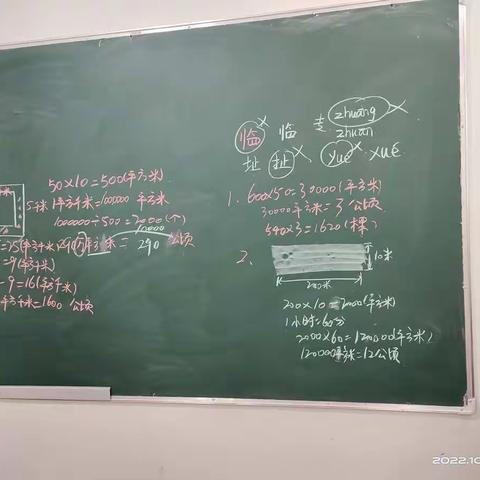 50×10=500(平方米)
1平方千米=1000000平方米
1000000÷500=2000(个)
5千米
=25(平方千米)
290万平方米= 290 公顷
10000
=9(平方千米)
-9=16(平方千米)
平方千米=1600 公顷
临 临 专 zhuang
zhuan
址 扯 yuē xuē
1. 600×50=30000(平方米)
30000平方米=3公顷
540×3=1620(棵)
2、
10米
200米
200×10=2000(平方米)
1小时=60分
2000×60=120000(平方米)
120000平方米=12公顷
2022.10